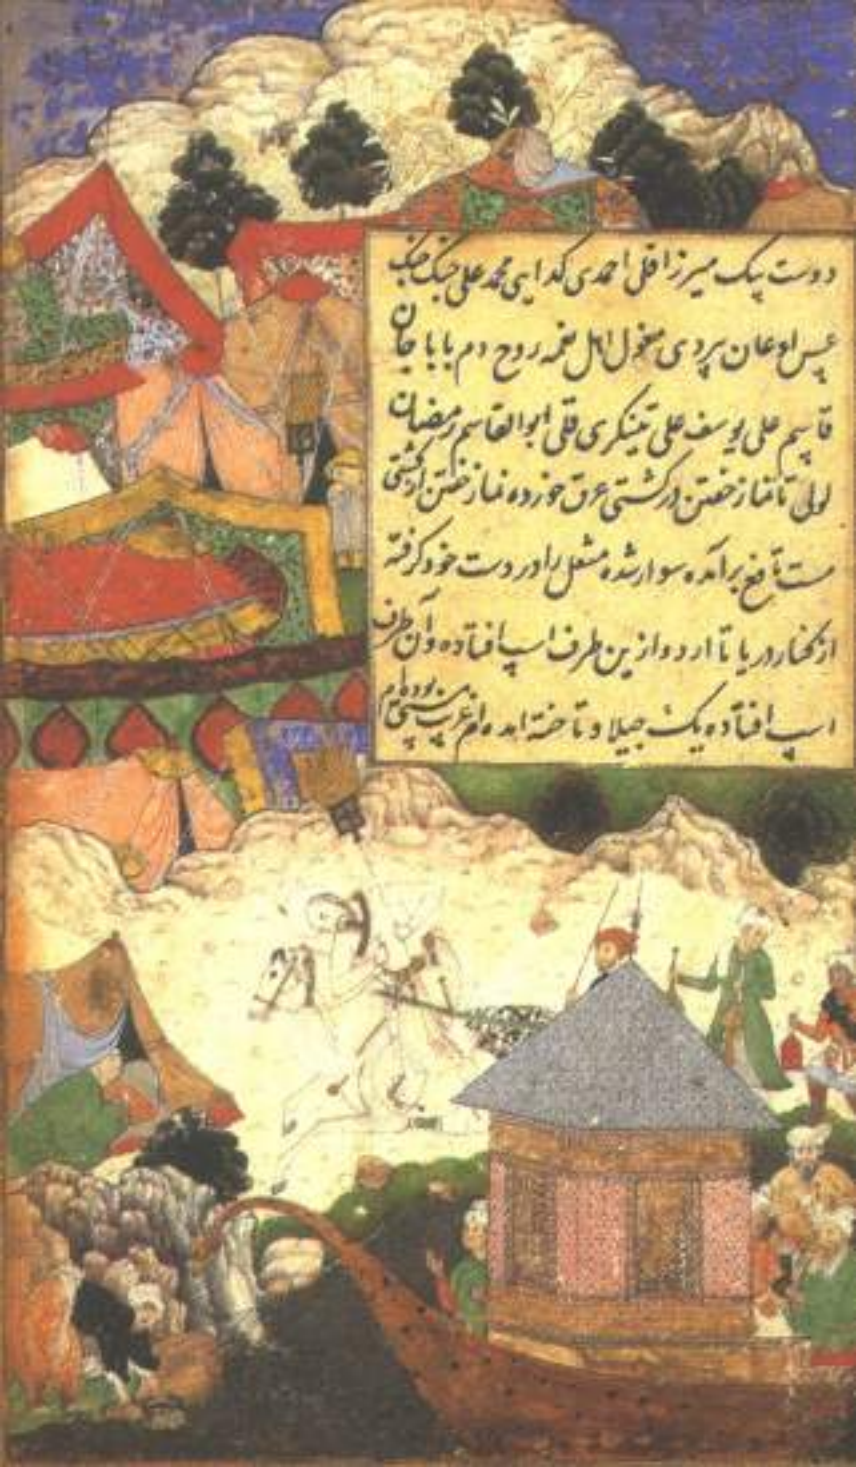 دوست بیک میرزا قلی احمدی کدایی محمد علی جنک جنک
عسس اوغان بردی مغول اهل نغمه روح دم بابا جان
قاسم علی یوسف علی تینکری قلی ابوالقاسم رمضان
لولی تا نماز خفتن در کشتی عرق خورده نماز خفتن از کشتی
مست تا فخ برآمده سوار شده مشعل را در دست خود کرفته
از کنار دریا تا اردو ازین طرف اسپ افتاده و آن طرف
اسپ افتاده یک جیلاو تاخته آمده‌ام غریب مستی بوده‌ام